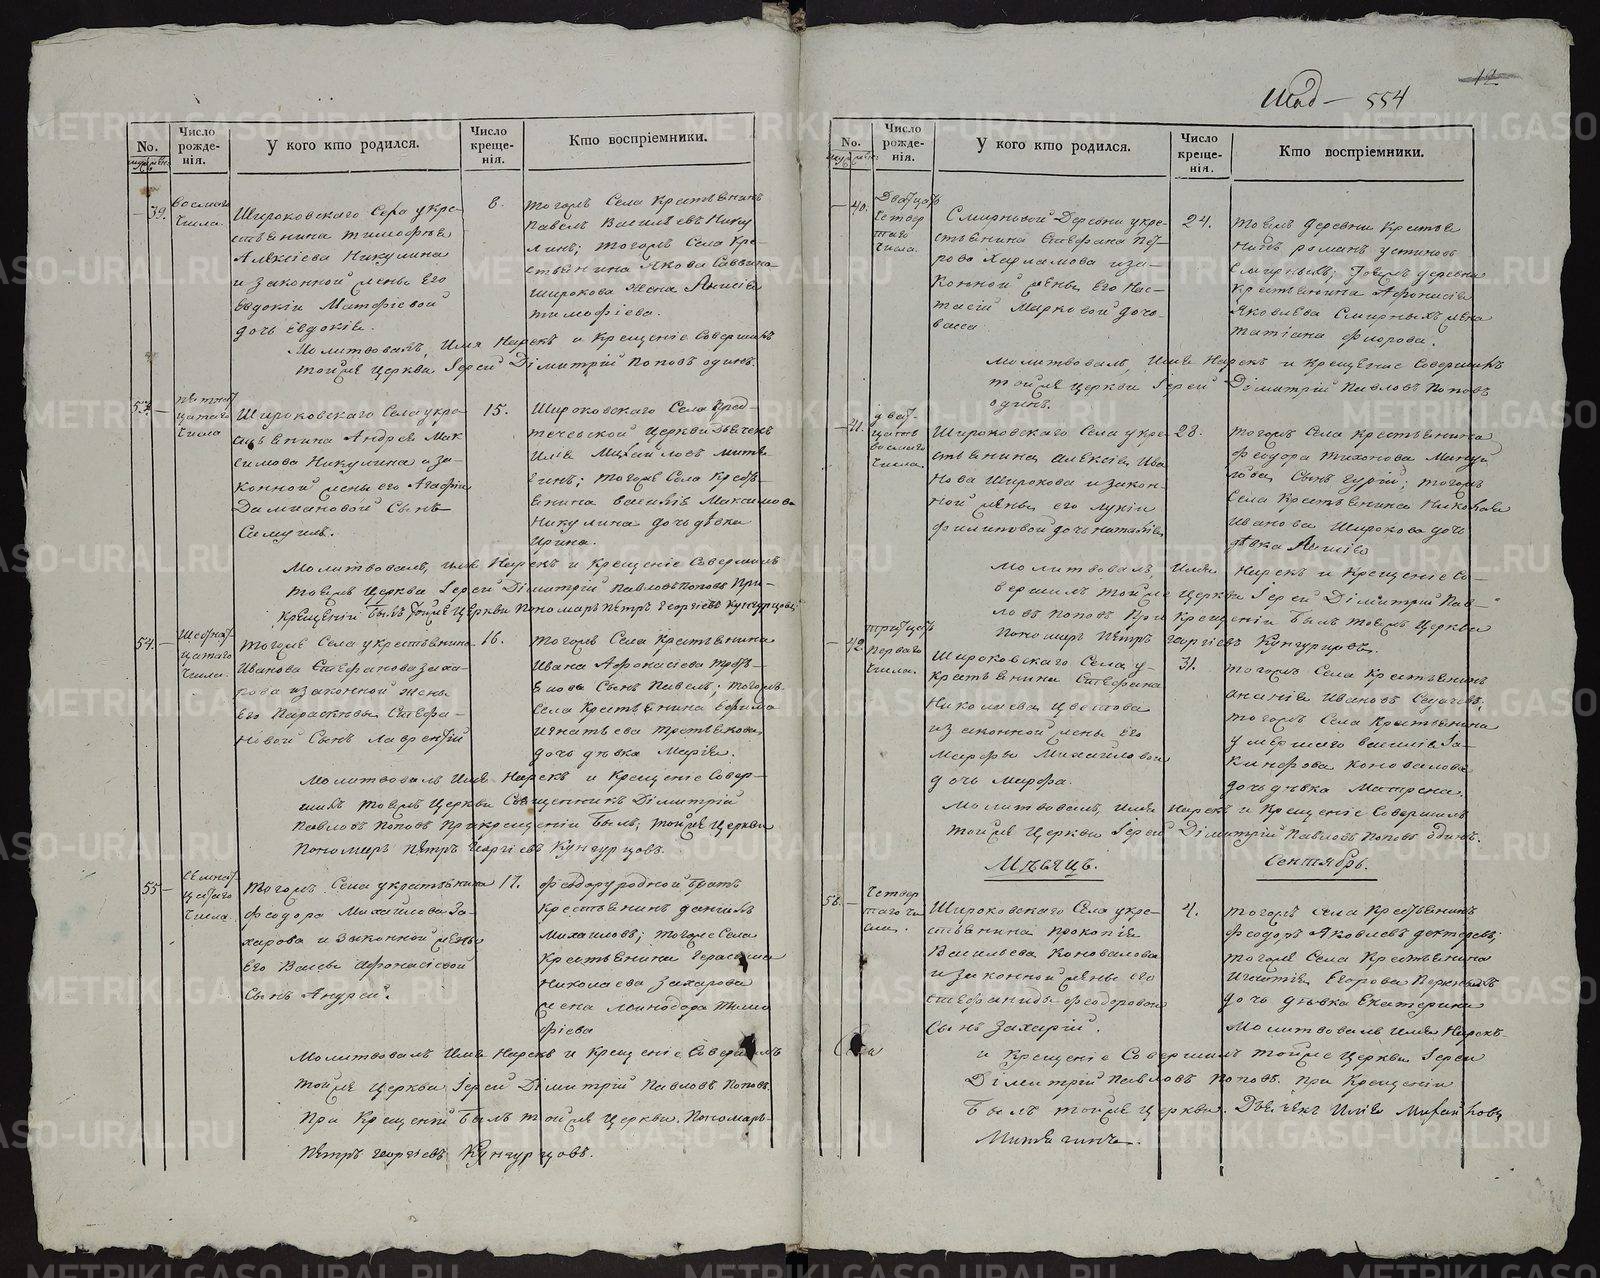 12
Шад – 554
No.
Число рожденія.
У кого кто родился.
Число крещенія.
Кто воспріемники.
39.
восмаго
числа.
Широковскаго Села у кре-
стьянина Тимофѣя
Алексіева Никулина
и законной жены Его
Евдокіи Матфіевой
дочь Евдокія.
8.
тогожъ Села Крестьянинъ
Павелъ Васильевъ Нику
линъ; тогожъ Села Кре-
стьянина Якова Саввина
Широкова жена Анисія
Тимофіева.
Молитвовалъ, Имя Нарекъ и Крещеніе Совершилъ
тойже Церкви Іерей Димитрій Поповъ одинъ.
53.
пятнад
цатаго
числа
Широковскаго Села у кре-
стьянина Андрея Мак
симова Никулина и за-
конной жены его Агафіи
Даміановой Сынъ
Самуилъ.
15.
Широковскаго Села Пред-
течевской Церкви Дьячекъ
Илія Михайловъ Митя-
гинъ; тогоже Села Кресть-
янина Василія Максимова
Никулина дочь дѣвка
Ирина.
Молитвовалъ, имя Нарекъ и Крещеніе Совершилъ
тойже Церкви Іерей Димитрій Павловъ Поповъ При-
Крещеніи былъ тойже Церкви Пономарь Петръ Георгіевъ Кунгурцовъ
54.
Шестнад
цатаго
числа.
тогоже Села у крестьянина
Ивана Стефанова Заха-
рова и законной жены
Его Параскевы Стефа-
новой Сынъ Лаврентій
16.
тогожъ Села Крестьянина
Ивана Афонасіева
Сынъ Павелъ; тогожъ
Села Крестьянина Ефима
Игнатьева Третьякова
дочь дѣвка Марія.
Молитвовалъ Имя Нарекъ и Крещеніе Совер-
шилъ тойже Церкви Священникъ Димитрій
Павловъ Поповъ При крещеніи былъ, тойже Церкви
Пономарь Петръ Георгіевъ Кунгурцовъ.
55
семнад
цатаго
числа.
тогожъ Села у крестьянина
Феодора Михайлова За-
харова и Законной жены
Его Вассы Афонасіевой
Сынъ Андрей.
17.
Феодору родной братъ
Крестьянинъ Даніилъ
Михаиловъ; тогоже Села
Крестьянина Герасима
Николаева Захарова
жена Минодора Тимо
фіева
Молитвовалъ Имя Нарекъ и Крещеніе Совершилъ
тойже Церкви Іерей Димитрій Павловъ Поповъ.
При Крещеніи былъ тойже Церкви Пономарь
Петръ Георгіевъ Кунгурцовъ.
No.
Число рожденія.
У кого кто родился.
Число крещенія.
Кто воспріемники.
40.
Двадцать
четвер
таго
числа.
Смирновой Деревни у кре-
стьянина Стефана Пет-
рова Харламова и за-
конной жены Его Нас-
тасіи Марковой дочь
Васса
24.
тоежъ деревни Крестья
нинъ Романъ Устиновъ
Смирныхъ; тоежъ деревни
Крестьянина Афонасія
Яковлева Смирныхъ жена
Татіана Феорова.
Молитвовалъ, Имя Нарекъ и Крещеніе Совершилъ
тойже Церкви Іерей Димитрій Павловъ Поповъ
одинъ.
41.
двад
цать
восмаго
числа.
Широковскаго Села у кре-
стьянина Алексія Ива
нова Широкова и закон-
ной жены его Лукіи
Филиповой дочь Наталія
28.
тогожъ Села Крестьянина
Феодора Тихонова Мануй
лова Сынъ Гурій; тогожъ
Села Крестьянина Николая
Иванова Широкова дочь
дѣвка Анисія
Молитвовалъ, Имя Нарекъ и Крещеніе Со-
вершилъ тойже Церкви Іерей Димитрій Пав-
ловъ Поповъ При Крещеніи Былъ тоежъ Церкви
Пономарь Петръ Георгіевъ Кунгурцовъ.
42
тридцать
перваго
числа.
Широковскаго Села у
Крестьянина Стефана
Николаева Цветова
и законной жены его
Марфы Михайловой
дочь Марфа.
31.
тогожъ Села Крестьянинъ
Ананія Ивановъ
тогожъ Села Крестьянина
умершаго Василія Га-
Коновалова
дочь дѣвка Матрена.
Молитвовалъ, Имя Нарекъ и Крещеніе Совершилъ
тойже Церкви Іерей Димитрій Павловъ Поповъ одинъ.
Мѣсяцъ. Сентябрь.
58.
четвер
таго чи
сла.
Широковскаго Села у кре-
стьянина Прокопія
Васильева Коновалова
и законной жены его
Стефаниды Феодоровой
Сынъ Захарій.
4.
тогожъ села Крестьянинъ
Феодоръ Яковлевъ Дехтеревъ;
тогоже Села Крестьянина
Игнатія Егорова
дочь дѣвка Екатерина
Молитвовалъ Имя Нарекъ
и Крещеніе Совершилъ тойже Церкви Іерей
Димитрій Павловъ Поповъ. При Крещеніи
Былъ тойже церкви. Дьячекъ Илія Михайловъ
Митягинъ.